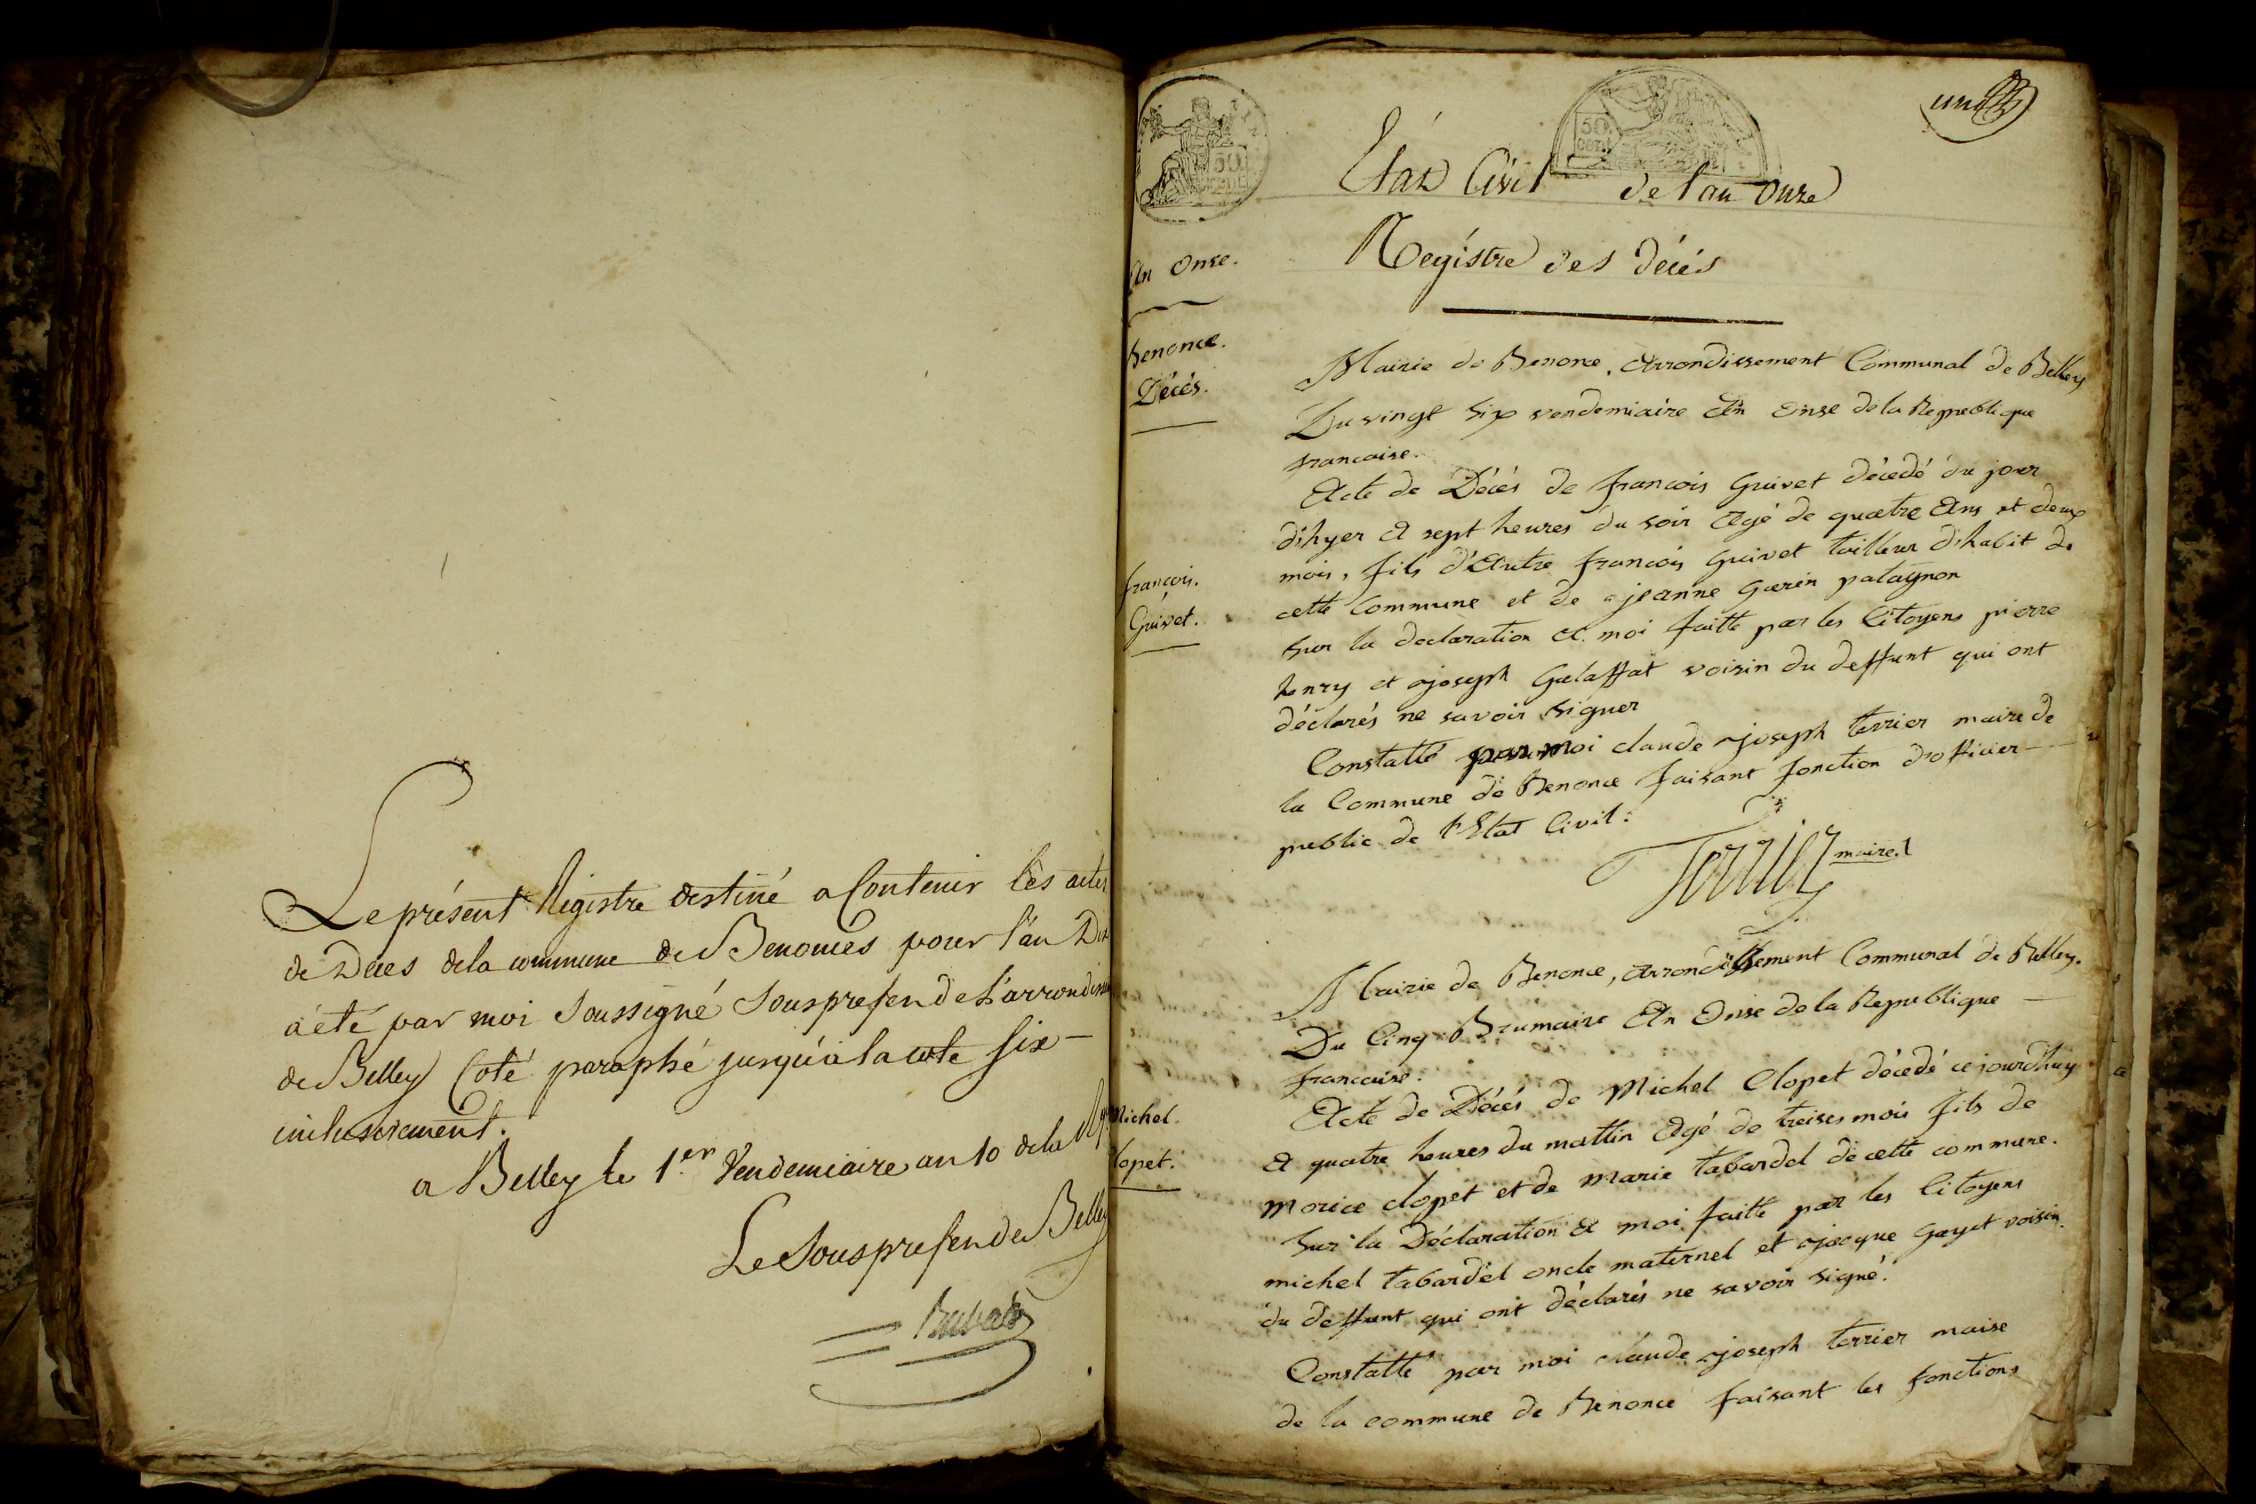 Le présent Régistre destiné a Contenir les actes
de Décés de la commune de Benonces pour l'an Dix
a été par moi soussigné Sousprefen de L'arrondissem
de Belley Coté paraphé jusqu'à la cote six —
inclusivement.
a Belley le 1.er Vendemiaire an 10 de la
Le Sousprefen de Belley
un
50
CENT
50
CENT
Etat Civil de l'an onze
Régistre des décés
An Onse.
Benonce.
Décés.
Mairie de Benonce, Arrondissement Communal de Belley
Du vingt six vendemiaire An Onse de la Republique
francaise.
françois.
Guivet.
Acte de Décés de françois Guivet décedé du jour
d'hyer a sept heures du soir Agé de quatre Ans et deux
mois, fils d'Autre françois Guivet tailleur d'habit de
cette Commune et de jeanne Garin patagnon
Sur la declaration A moi faitte par les Citoyens pierre
henry et joseph Galaffat voisin du deffunt qui ont
déclarés ne savoir signer
Constatté par moi claude joseph terrier maire de
la Commune de Benonce faisant fonction d'officier —
public de l'Etat Civil.
Terrier maire
Mairie de Benonce, Arrondissement Communal de Belley.
Du Cinq Brumaire An Onse de la Republique —
francaise.
Michel.
Clopet.
Acte de Décés de Michel Clopet décedé ce jourdhuy
A quatre heures du mattin Agé de treises mois fils de
Morice clopet et de Marie tabardel de cette commune.
Sur la Déclaration A moi faitte par les Citoyens
michel tabardel oncle maternel et jacque Gayet voisin
du deffunt qui ont déclarés ne savoir signé.
Constatté par moi claude joseph terrier maire
de la commune de Benonce faisant les fonctions